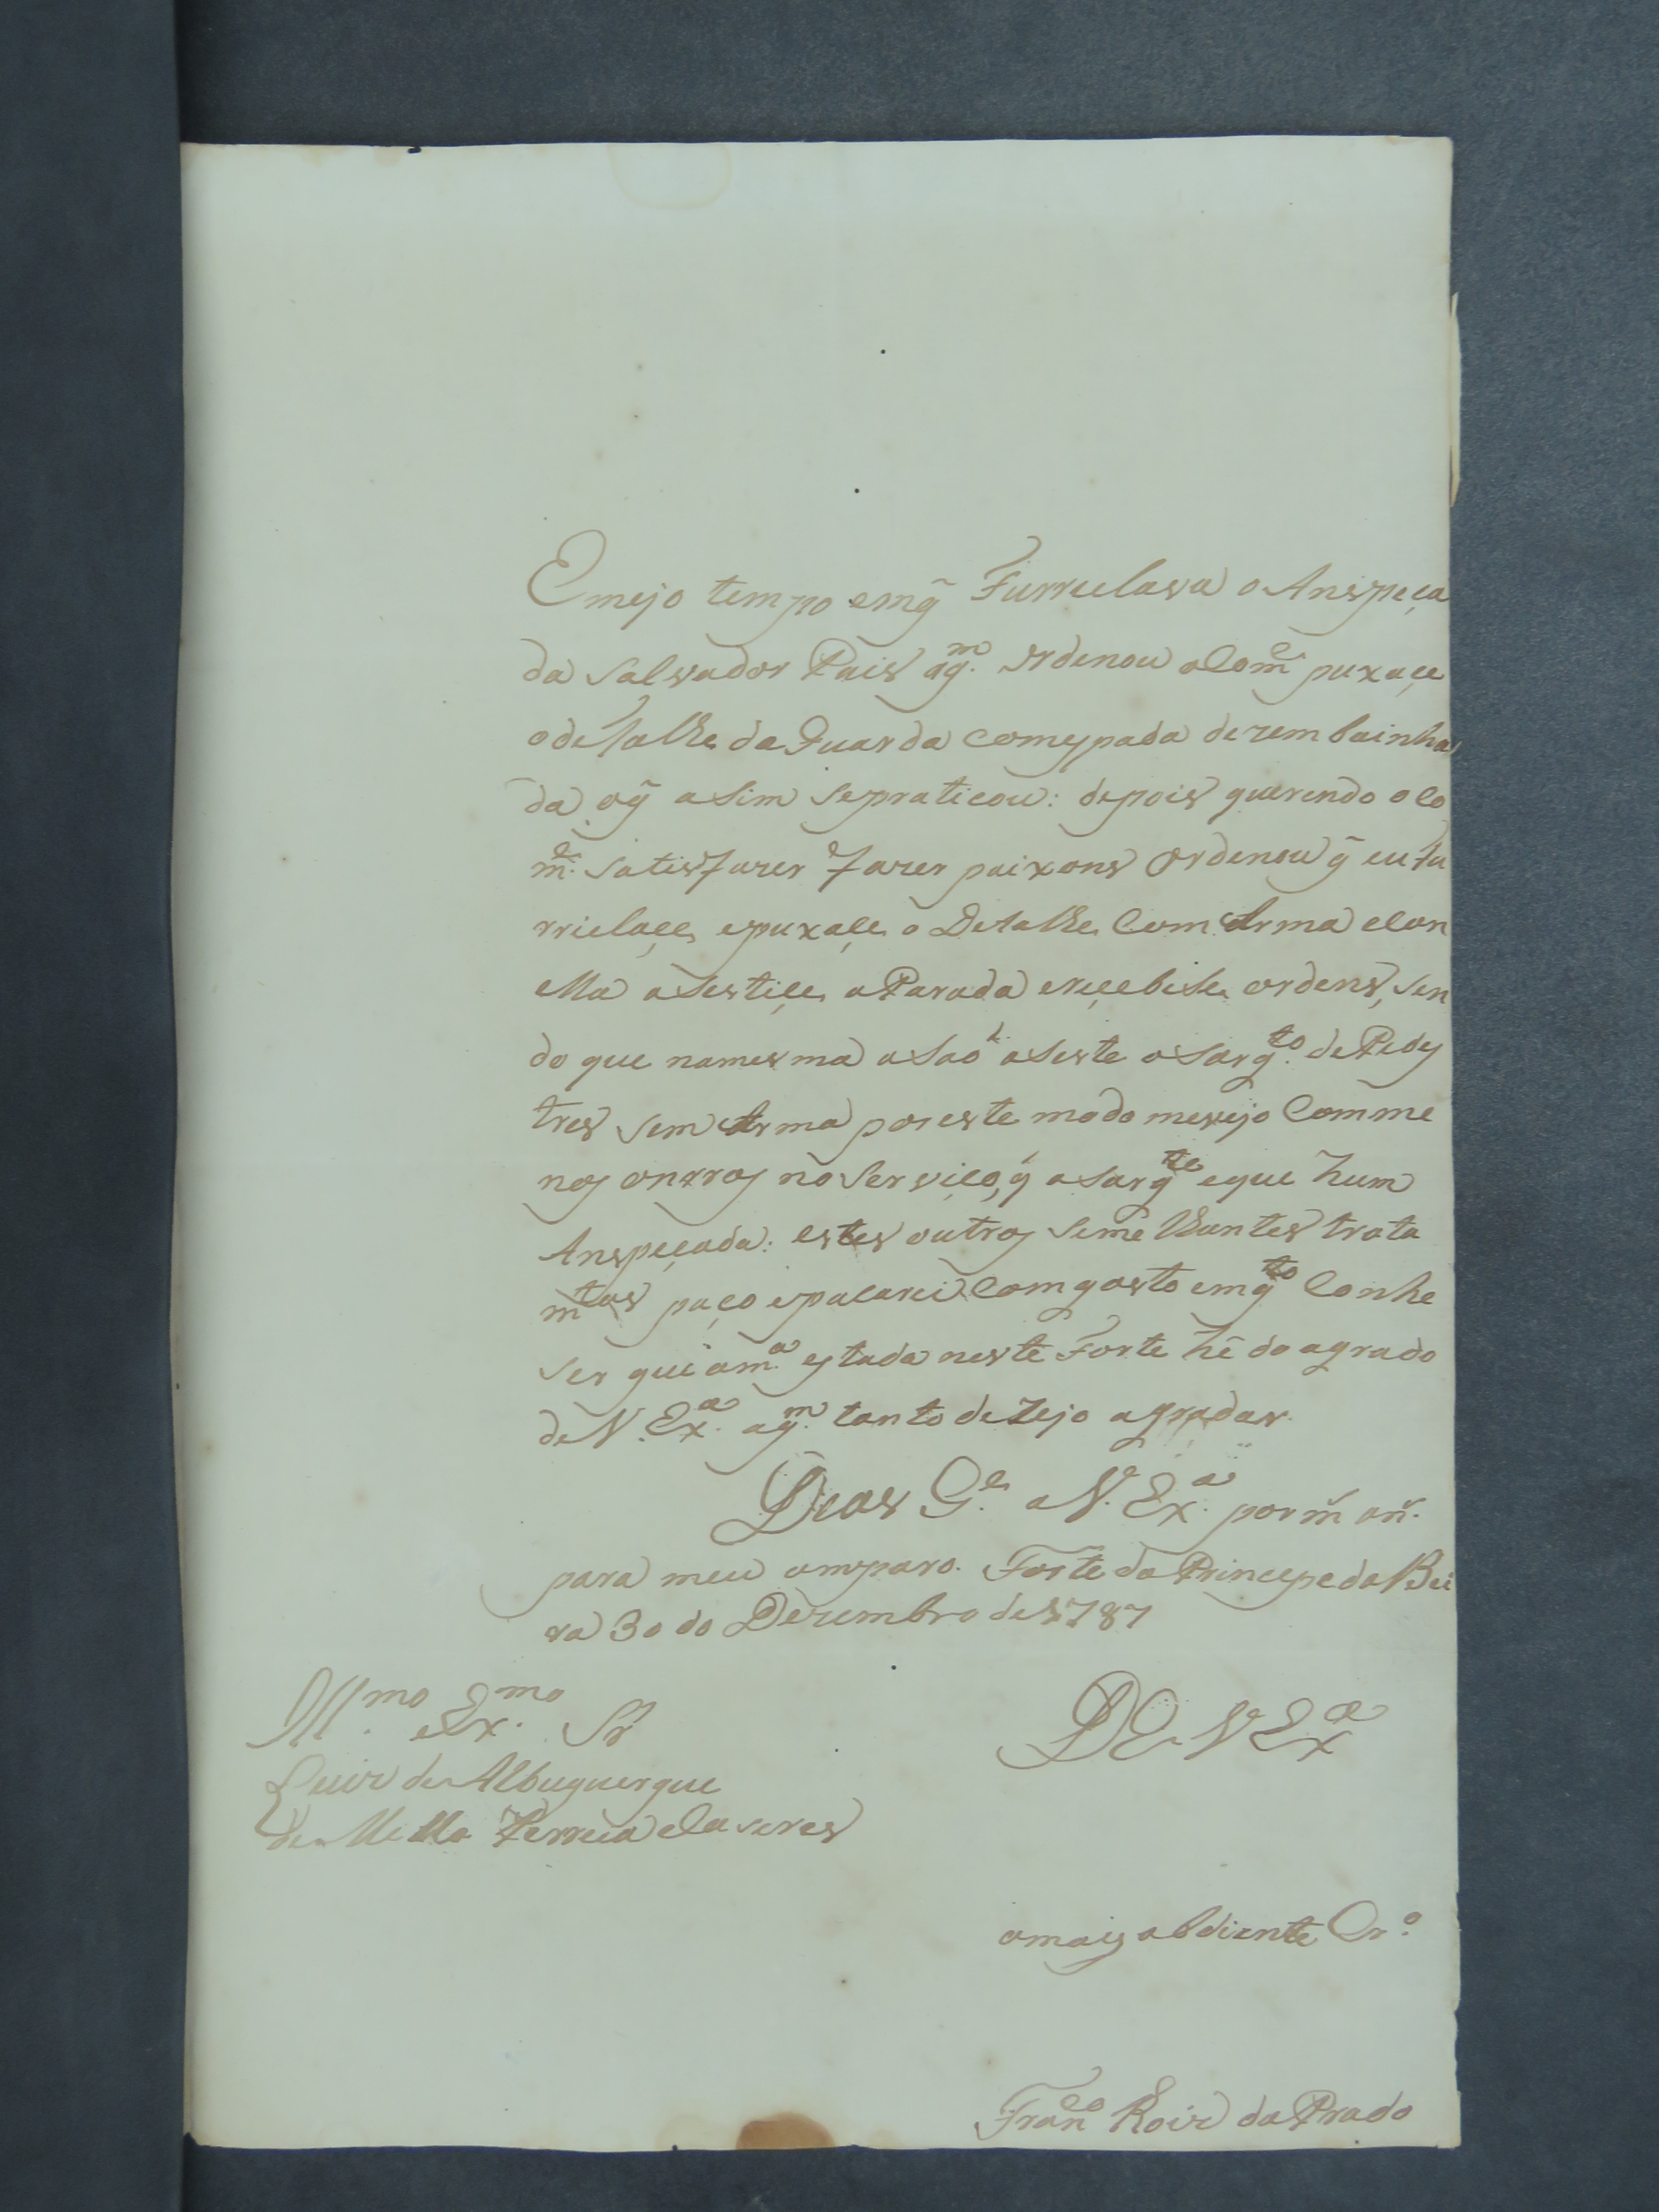 Emejo tempo emq̃ Furrielava o Anspeça
da Salvador Pais aq.m ordenou oCom.e puxaçe
odetalhe da Guarda comespada dezembainha
da oq̃ asim sepraticou: depois querendo oCo
m.e Satisfazer Fazer paixons ordenou q̃ eu fu
rrielaçe, epuxaçe o Detalhe Com Arma eCon
ella asestiçe, aParada ereçebese ordens, sen
do que namesma asaõ aseste oSarg.to dePedes
tres sem Arma poreste modo mevejo Comme
nos onrros noServiço, q̃ oSarg.te eque hum
Anspeçada: estes outros Semelhantes trata
m.tos paço epacarei Comgosto emq.to Conhe
ser queam.a estada neste Forte hé do agrado
de V. Ex.a aq.m tanto dezejo agradar.
Deos G.e a V. Ex.a por m. an.
para meu amparo. Forte do Principe da Bei
ra 30 do Dezembro de 1787
Ill.mo eEx.mo Sr
Luiz de Albuquerque
de Mello Perreia eCaseres
DE V Ex.a
omais obdiente Cr.o
Fran.co Roiz do Prado